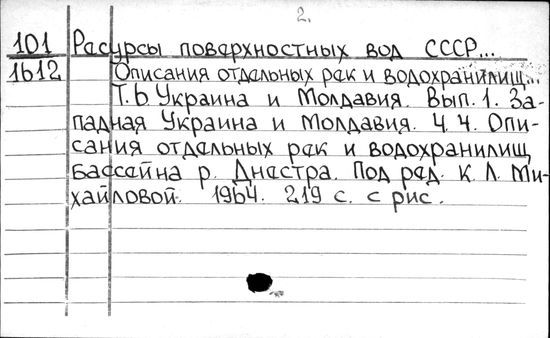 2.
101 Ресурсы поверхностных вод СССР...
1612 Описания отдельных рек и водохранилищ...
Т.6 Украина и Молдавия. Вып. 1. За-
падная Украина и Молдавия. Ч. 4. Опи-
сания отдельных рек и водохранилищ
бассейна р. Днестра. Под ред. К. Л. Ми-
хайловой. 1964. 219 с. с рис.